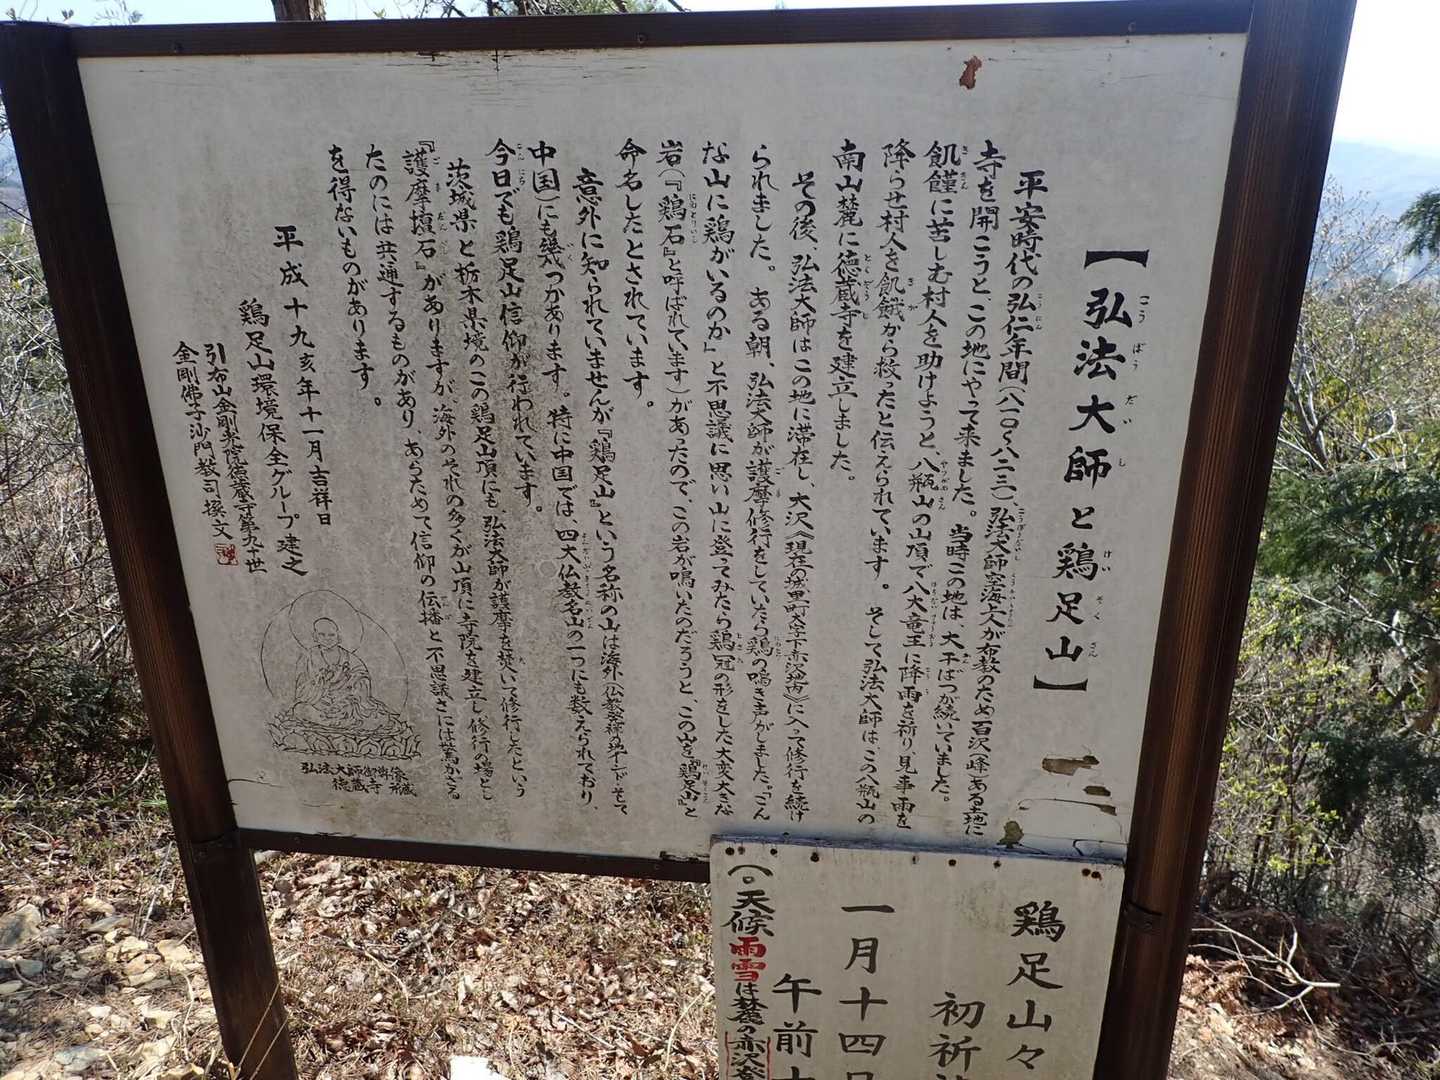 【弘法大師と鶏足山】
平安時代の弘仁年間(八一〇〜八二三)、弘法大師空海上人が布教のため百沢峰ある土地に
寺を開こうと、この地にやって来ました。当時この地は、大干ばつが続いていました。
飢饉に苦しむ村人を助けようと、八瓶山の山頂で八大竜王に降雨を祈り、見事雨を
降らせ村人を飢餓から救ったと伝えられています。そして弘法大師は、この八瓶山の
南山麓に徳蔵寺を建立しました。
その後、弘法大師はこの地に滞在し、大沢(現在の城里町大字下赤沢地内)に入って修行を続け
られました。ある朝、弘法大師が護摩修行をしていたら鶏の鳴き声がしました。「こん
な山に鶏がいるのか」と不思議に思い山に登ってみたら鶏冠の形をした大変大きな
岩(『鶏石』と呼ばれています)があったので、この岩が鳴いたのだろうと、この山を『鶏足山』と
命名したとされています。
意外に知られていませんが『鶏足山』という名称の山は海外(仏教発祥の地インドそして
中国)にも幾つかあります。特に中国では、四大仏教名山の一つにも数えられており、
今日でも鶏足山信仰が行われています。
茨城県と栃木県境のこの鶏足山頂にも、弘法大師が護摩を焚いて修行したという
『護摩壇石』がありますが、海外のそれの多くが山頂に寺院を建立し修行の場とし
たのには共通するものがあり、あらためて信仰の伝播と不思議さには驚かざる
を得ないものがあります。
平成十九亥年十一月吉祥日
鶏足山環境保全グループ建之
引布山金剛光院徳蔵寺第九十世
金剛佛子沙門教司撰文
弘法大師御尊像
徳蔵寺所蔵
鶏足山々
初祈
一月十四日
午前十
(○天候雨雪は麓の赤沢